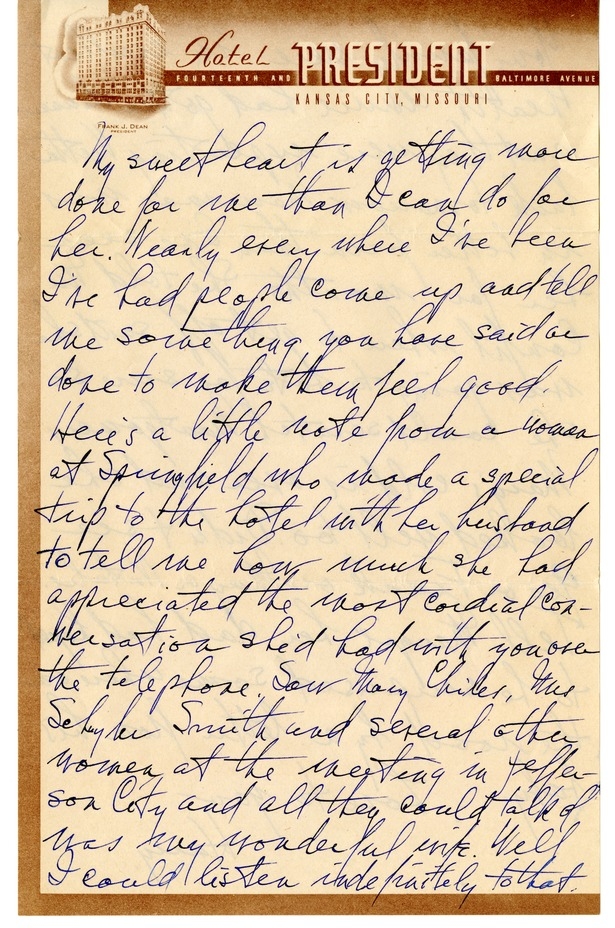 Hotel PRESIDENT
FOURTEENTH AND BALTIMORE AVENUE
KANSAS CITY, MISSOURI
FRANK J. DEAN
PRESIDENT
My sweetheart is getting more
done for me than I can do for
her. Nearly every where I've been
I've had people come up and tell
me something you have said or
done to make them feel good.
Here's a little note from a woman
at Springfield who made a special
trip to the hotel with her husband
to tell me how much she had
appreciated the most cordial con-
versation she'd had with you over
the telephone. Saw Mary Chiles, Mrs
Schyler Smith and several other
women at the meeting in Jeffer-
son City and all they could talk of
was my wonderful wife. Well
I could listen indefinitely to that.